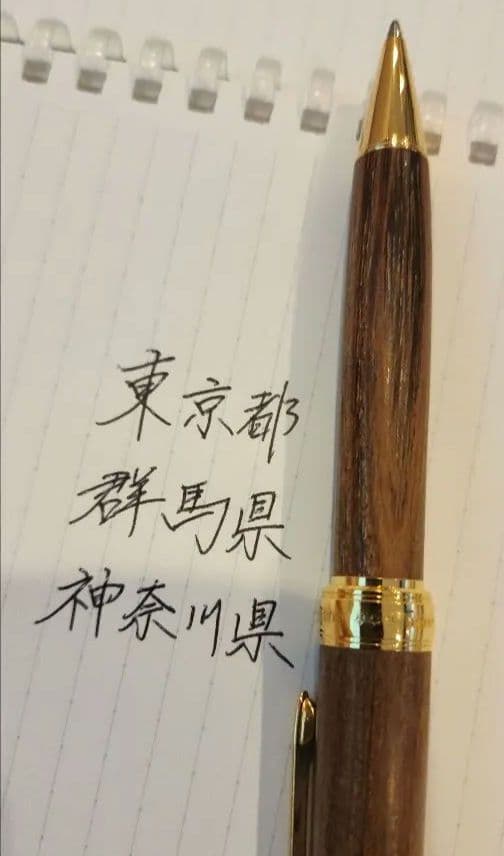 東京都
群馬県
神奈川県